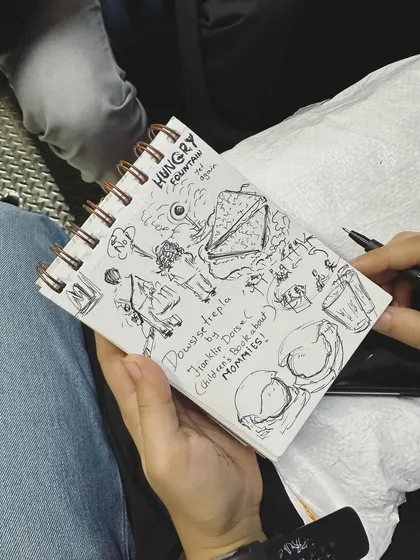 HUNGRY
FOUNTAIN
yet
again
No!
M
by
Franklin Dorsey
(Children's Book about)
MOMMIES!